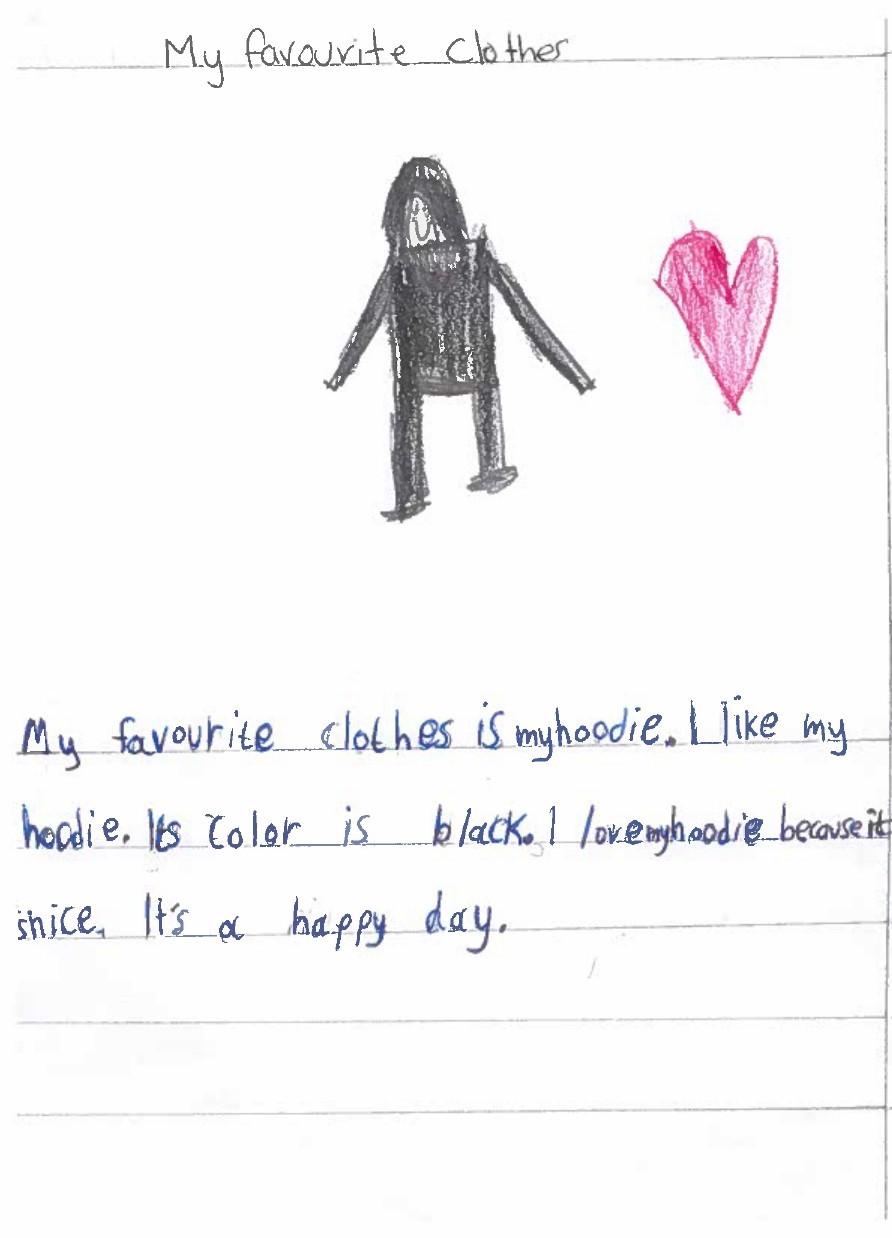 My favourite clothes
My favourite clothes is my hoodie. I like my
hoodie. Its color is black. I love my hoodie because it
snice. It's a happy day.